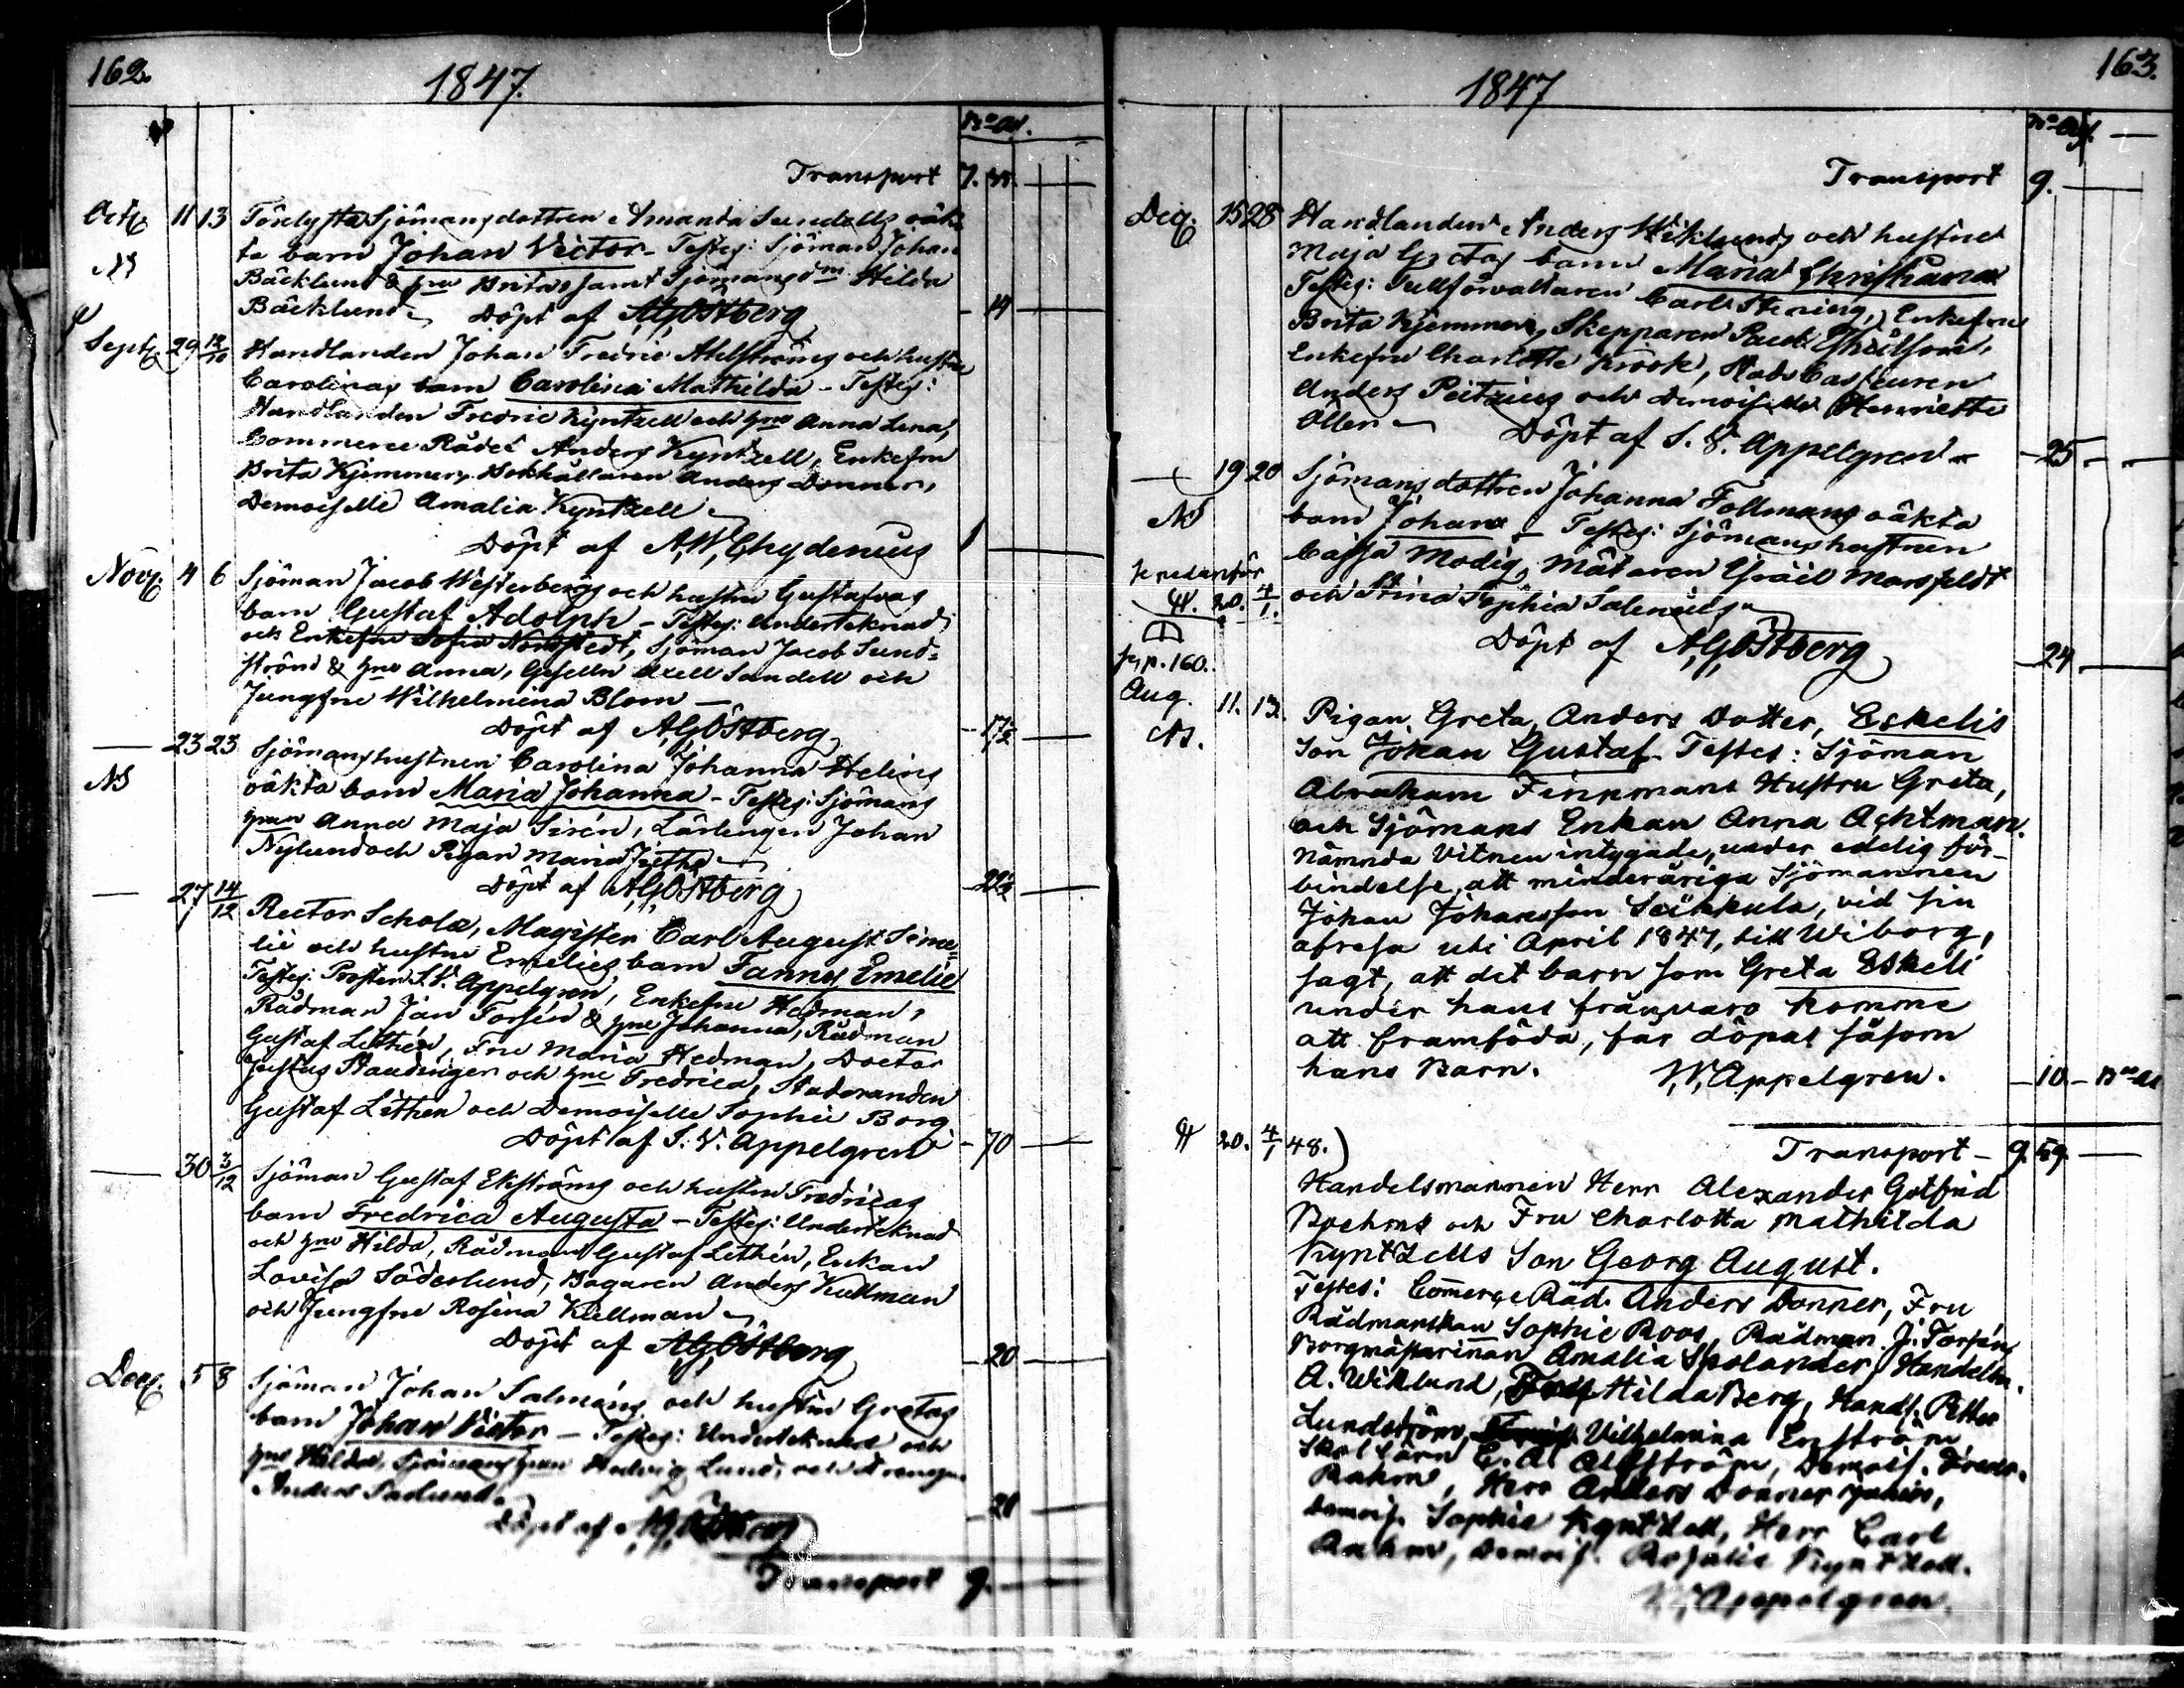 162.
1847.
Transport 7.
Octb. 11 13 Förlysta Sjömansdottren Amanda Sundells oäk-
ta barn Johan Victor – Testes: Sjöman Johan
Bäcklund & hru Brita samt Sjömansdn Hilda
Bäcklund Döpt af A,G,Östberg – 14
Septb. 29 12/10 Handlanden Johan Fredric Ahlströms och hustru
Carolinas barn Carolina Mathilda – Testes:
Handlanden Fredric Kyntzell och hru Anna Lena,
Commerce Rådet Anders Kyntzell, Enkefru
Brita Kjemmer, Bokhållaren Anders Donner,
Demoiselle Amalia Kyntzell
Döpt af A,W,Chydenius 1
Novb. 4 6 Sjöman Jacob Westerbergs och hustru Gustafvas
barn Gustaf Adolph – Testes: Undertecknad
och Enkefru Sofia Nordstedt, Sjöman Jacob Sund-
ström & hru Anna, Gesellen Axell Sandell och
Jungfru Wilhelmina Blom –
Döpt af A,G,Östberg – 17½
— 23 23 Sjömanshustrun Carolina Johanna Helins
oäkta barn Maria Johanna – Testes: Sjömans
hrun Anna Maja Sirén, Lärlingen Johan
Nylund och Pigan Maria
Döpt af A,G,Östberg – 22½
— 27 14/12 Rector Scholæ, Magister Carl August Sime-
lii och hustru Emelies barn Fanny Emelie
Testes: Prosten S.V. Appelgren, Enkefru Hedman,
Rådman Jan Forsén & hru Johanna, Rådman
Gustaf Lithén, Fru Maria Hedman, Doctor
Justus Staudinger och hru Fredrica, Studeranden
Gustaf Lithen och Demoiselle Sophie Borg
Döpt af S. V. Appelgren – 70
— 30 3/12 Sjöman Gustaf Ekströms och hustru Fredricas
barn Fredrica Augusta – Testes: Undertecknad
och hru Hilda, Rådman Gustaf Lithén, Enkan
Lovisa Söderlund, Bagaren Anders Kullman
och Jungfru Rosina Kullman
Döpt af A,G,Östberg – 20
Decb. 5 8 Sjöman Johan Salméns och hustru Gretas
barn Johan Victor – Testes: Undertecknad och
hru Hilda, Sjömanshrun Hedvig Lund, och
Anders
Döpt af A,G,Östberg
Transport 9.
163.
1847
Transport 9.
Decb. 15 28 Handlanden Anders Wiklunds och hustru
Maja Gretas barn Maria Christiana
Testes: Tullförvaltaren Carl Hering, Enkefru
Brita Kjemmer, Skepparen Jacob
Enkefru Charlotte Krook, Stads Casseuren
Anders Peitzius och Demoiselle Henriette
Öller Döpt af S. V. Appelgren – 25
— 19 20 Sjömansdottren Johanna Follmans oäkta
barn Johan – Testes: Sjömanshustrun
Cajsa Modig, Mätaren Israel Mansfeldt
och Stina Sophia Salenius
Döpt af A,G,Östberg 24
se nedanför
20. 4/1.
p. 160.
Aug. 11. 13. Pigan Greta, Anders Dotter, Eskelis
Son Johan Gustaf. Testes: Sjöman
Abraham Finnmans Hustru Greta,
och Sjömans Enkan Anna Achtman.
Nämnda Vitnen intygade, under edelig för-
bindelse, att minderåriga Sjömannen
Johan Johansson Seikkula, vid sin
afresa uti April 1847, till Wiborg,
sagt, att det barn som Greta Eskeli
under hans frånvaro komme
att framföda, får döpas såsom
hans Barn. W. Appelgren. – 10 –
20. 4/1 48.) Transport – 9. 59.
Handelsmannen Herr Alexander Gotfrid
Boehms och Fru Charlotta Mathilda
Kyntzells Son Georg August.
Testes: Commerce Råd. Anders Donner, Fru
Rådmanskan Sophie Roos, Rådman J. Forsén,
Borgmästarinnan Amalia Spolander, Handelsm.
A. Wiklund, Hilda Berg, Handl. Petter
Lundström, Vilhelmina Enström
Skollären C. A. Ahlström, Demois. Fredr.
Rahm, Herr Anders Donner junior,
Demois. Sophie Kyntzell, Herr Carl
Rahm, Demois. Rosalie Kyntzell.
W. Appelgren.